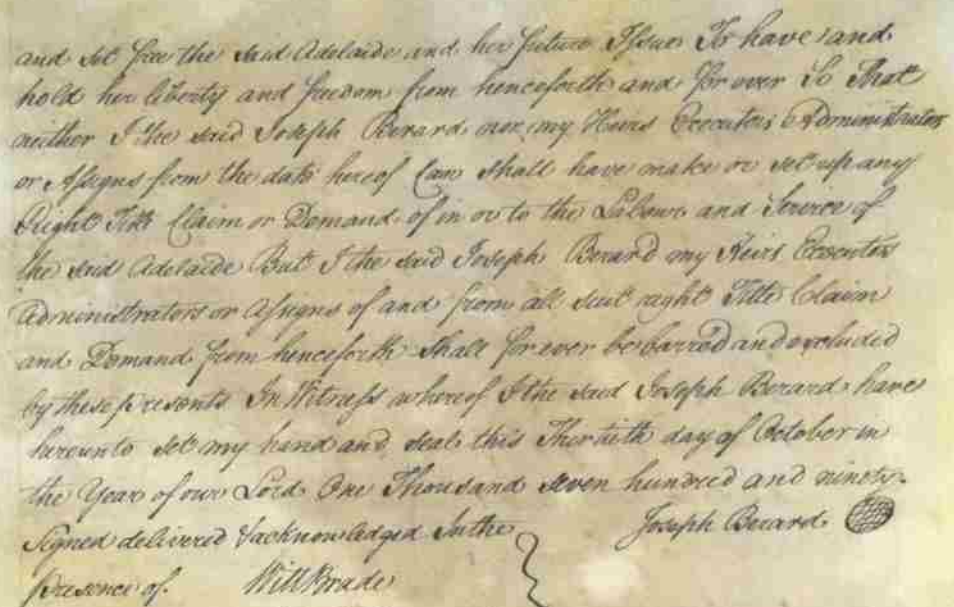 and set free the said Adelaide and her future Issue To have and
hold her liberty and freedom from henceforth and for ever So That
neither I the said Joseph Berard nor my Heirs Executors Administrators
or Assigns from the date hereof Can Shall have make or set up any
Right Title Claim or Demand of in or to the Labour and Service of
the said Adelaide But I the said Joseph Berard my Heirs Executors
Administrators or Assigns of and from all such right Title Claim
and Demand from henceforth Shall for ever be barred and excluded
by these presents In Witness whereof I the said Joseph Berard have
hereunto set my hand and seal this Thirtieth day of October in
the Year of our Lord One Thousand seven hundred and ninety
Signed delivered & acknowledged In the
Joseph Berard
presence of Will Brade